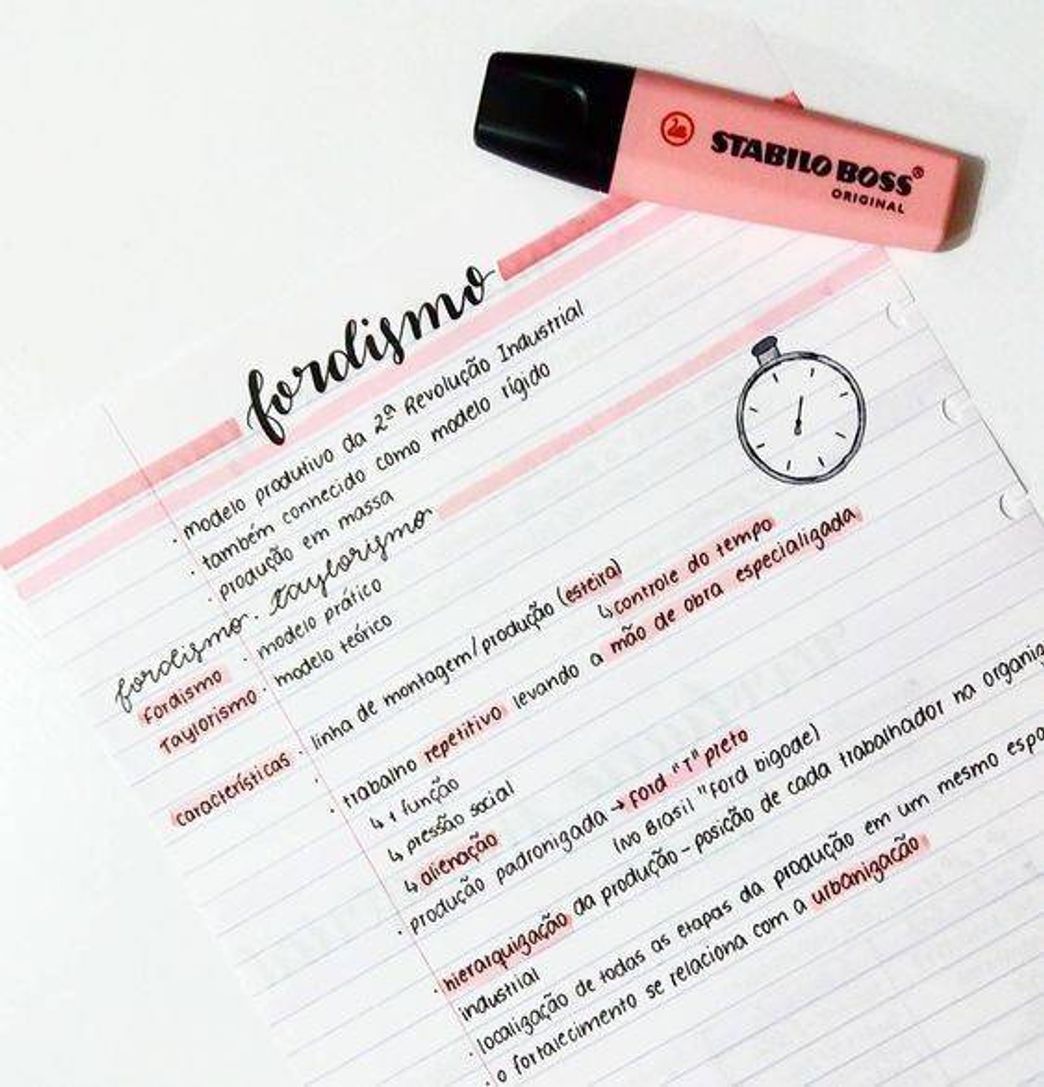 STABILO BOSS®
ORIGINAL
fordismo
· modelo produtivo da 2ª Revolução Industrial
· também conhecido como modelo rígido
· produção em massa
fordismo · taylorismo
fordismo · modelo prático
Taylorismo · modelo teórico
características · linha de montagem/produção (esteira)
↳ controle do tempo
· trabalho repetitivo levando a mão de obra especializada
↳ 1 função
↳ pressão social
↳ alienação
· produção padronigada → Ford "T" preto
(No Brasil "Ford bigode)
· hierarquização da produção - posição de cada trabalhador na
industrial
· localização de todas as etapas da produção em um mesmo
· o fortalecimento se relaciona com a urbanização